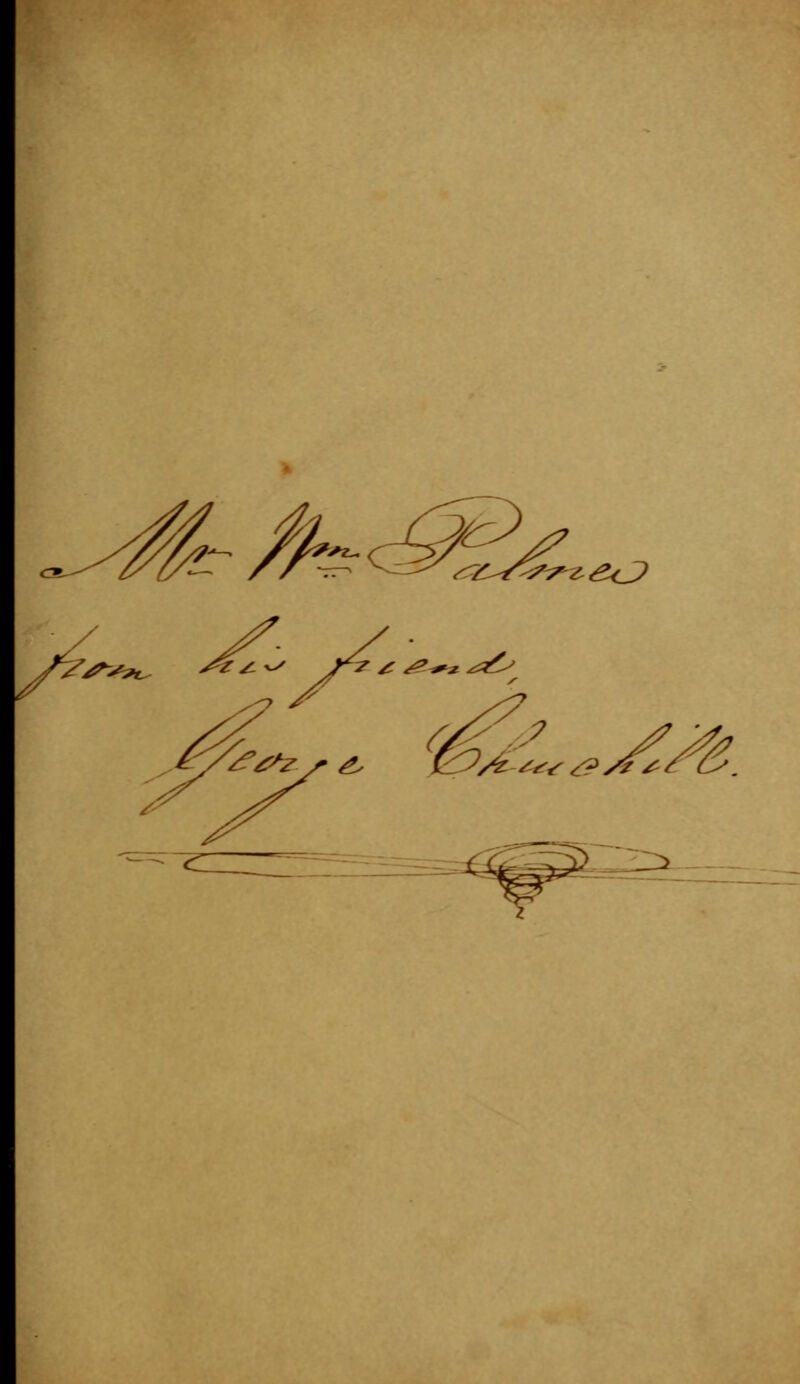 Mr Wm Palmer
from his friend
George Churchill.